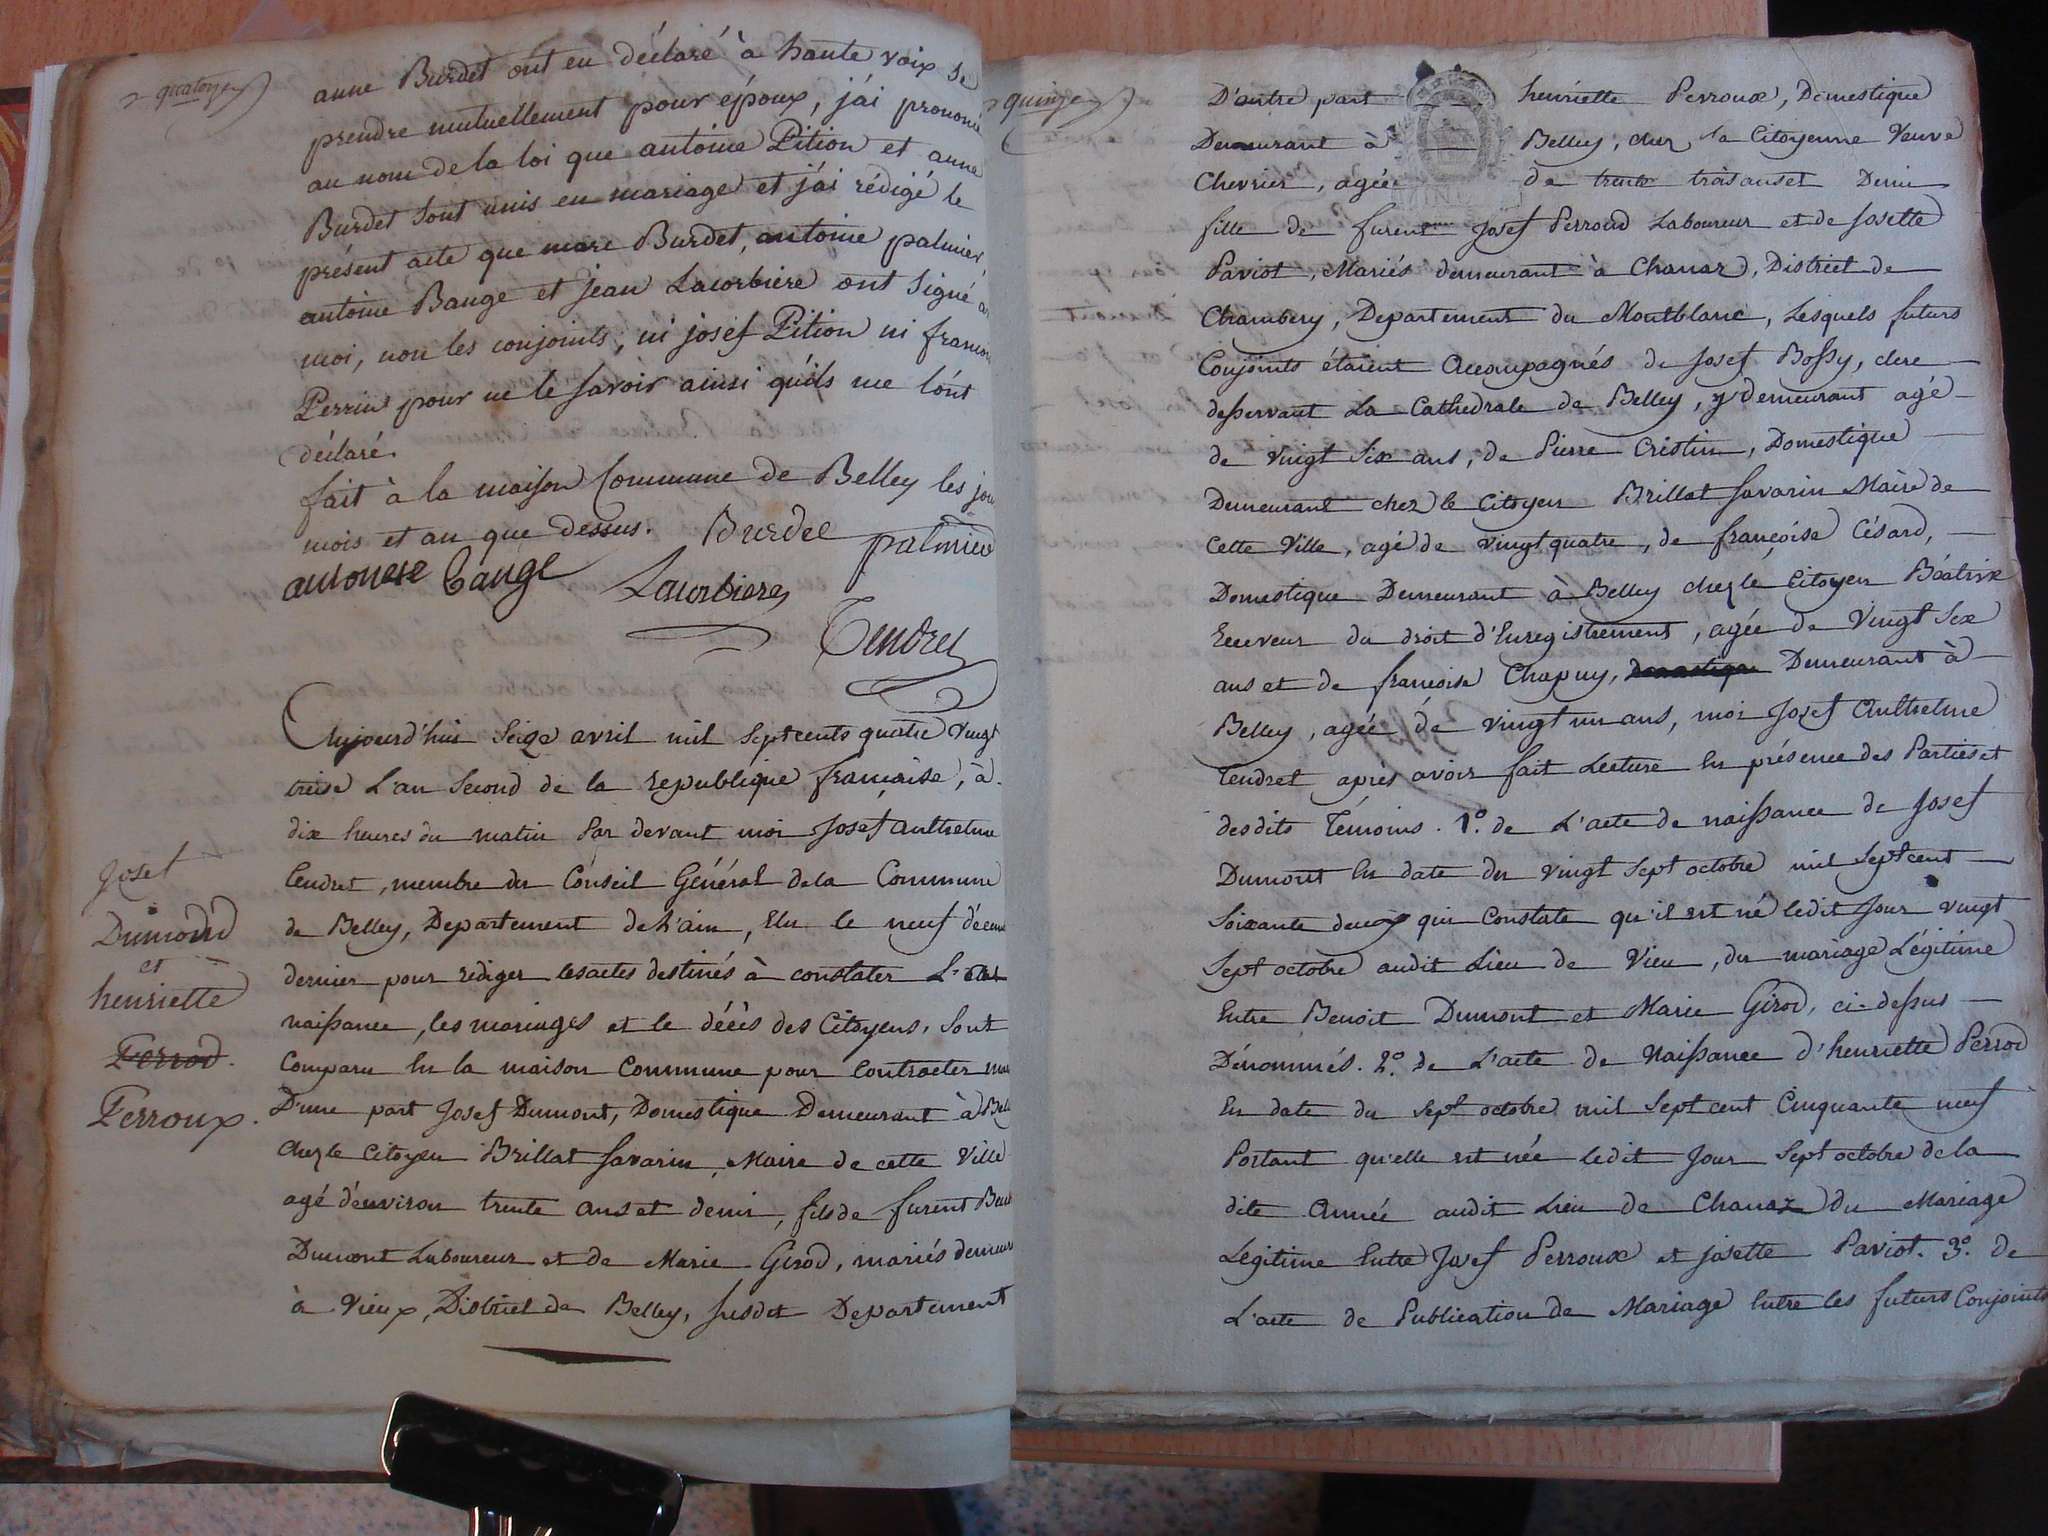 quatorze
anne Burdet ont eu déclaré à haute voix se
prendre mutuellement pour époux, j'ai prononcé
au nom de la loi que antoine Pition et anne
Burdet sont unis en mariage et j'ai rédigé le
présent acte que marc Burdet, antoine palmier,
antoine Bange et jean Lacorbiere ont signé a
moi, non les conjoints, ni josef Pition ni francoi
Perrin pour ne le savoir ainsi qu'ils me l'ont
déclaré.
fait à la maison Commune de Belley les jou
mois et an que dessus. Burdet palmier
antoine Bange Lacorbiere
Tendret
Aujourd'hui Seize avril mil Septcents quatre Vingt
treise L'an Second de la republique francaise, à
dix heures du matin Par devant moi Josef Anthelme
Tendret, membre du Conseil Général de la Commune
de Belley, Departement de L'ain, Elu le neuf décem
dernier pour rediger les actes destinés à constater L'
naissance, les mariages et le décès des Citoyens, Sont
Comparu En la maison Commune pour Contracter ma
D'une part Josef Dumont, Domestique Demeurant à Bell
Chez le Citoyen Brillat Savarin, Maire de cette Ville
agé d'environ trente ans et demi, fils de furent Ben
Dumont Laboureur et de Marie Girod, mariés demeur
à Vieux, District de Belley, susdit Departement
Josef
Dumond
et
henriette
Perrod.
Perroux.
quinze
D'autre part henriette Perroux, Domestique
Demeurant à Belley, chez la Citoyenne Veuve
Chevrier, agée de trente trois ans et Demi
fille de furent Josef Perroud Laboureur et de Josette
Paviot, Mariés demeurant à Chanaz, District de
Chambery, Departement du Montblanc, Lesquels futurs
Conjoints étaient Accompagnés de Josef Bossy, clerc
desservant La Cathedrale de Belley, y demeurant agé
de vingt Six ans, de Pierre Cristin, Domestique
Demeurant chez le Citoyen Brillat Savarin Maire de
Cette Ville, agé de vingt quatre, de françoise Césard,
Domestique Demeurant à Belley chez le Citoyen Béatrix
Receveur du droit d'Enregistrement, agée de Vingt Six
ans et de francoise Chapuy, domestique Demeurant à
Belley, agée de vingt un ans, moi Josef Anthelme
Tendret après avoir fait Lecture En présence des Parties et
desdits Témoins. 1º. de L'acte de naissance de Josef
Dumont En date du vingt sept octobre mil Sept cent
Soixante deux qui Constate qu'il est né ledit Jour vingt
Sept octobre audit Lieu de Vieu, du mariage Légitime
Entre Benoit Dumont et Marie Girod, ci-dessus
Dénommés. 2º. de L'acte de Naissance d'henriette Perrod
En date du sept octobre mil sept cent Cinquante neuf
Portant qu'elle est née ledit Jour Sept octobre de la
dite Année audit Lieu de Chanaz du Mariage
Légitime Entre Josef Perroux et josette Paviot. 3º. de
L'acte de Publication de Mariage Entre les futurs Conjoints